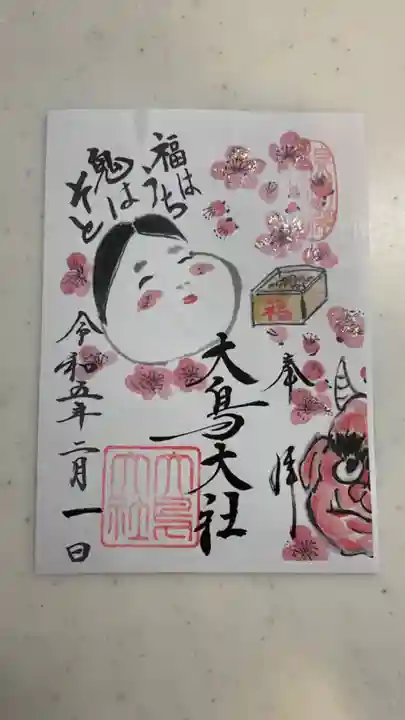 奉拝
福
大鳥大社
福はうち
鬼はそと
令和五年二月一日
大鳥大社